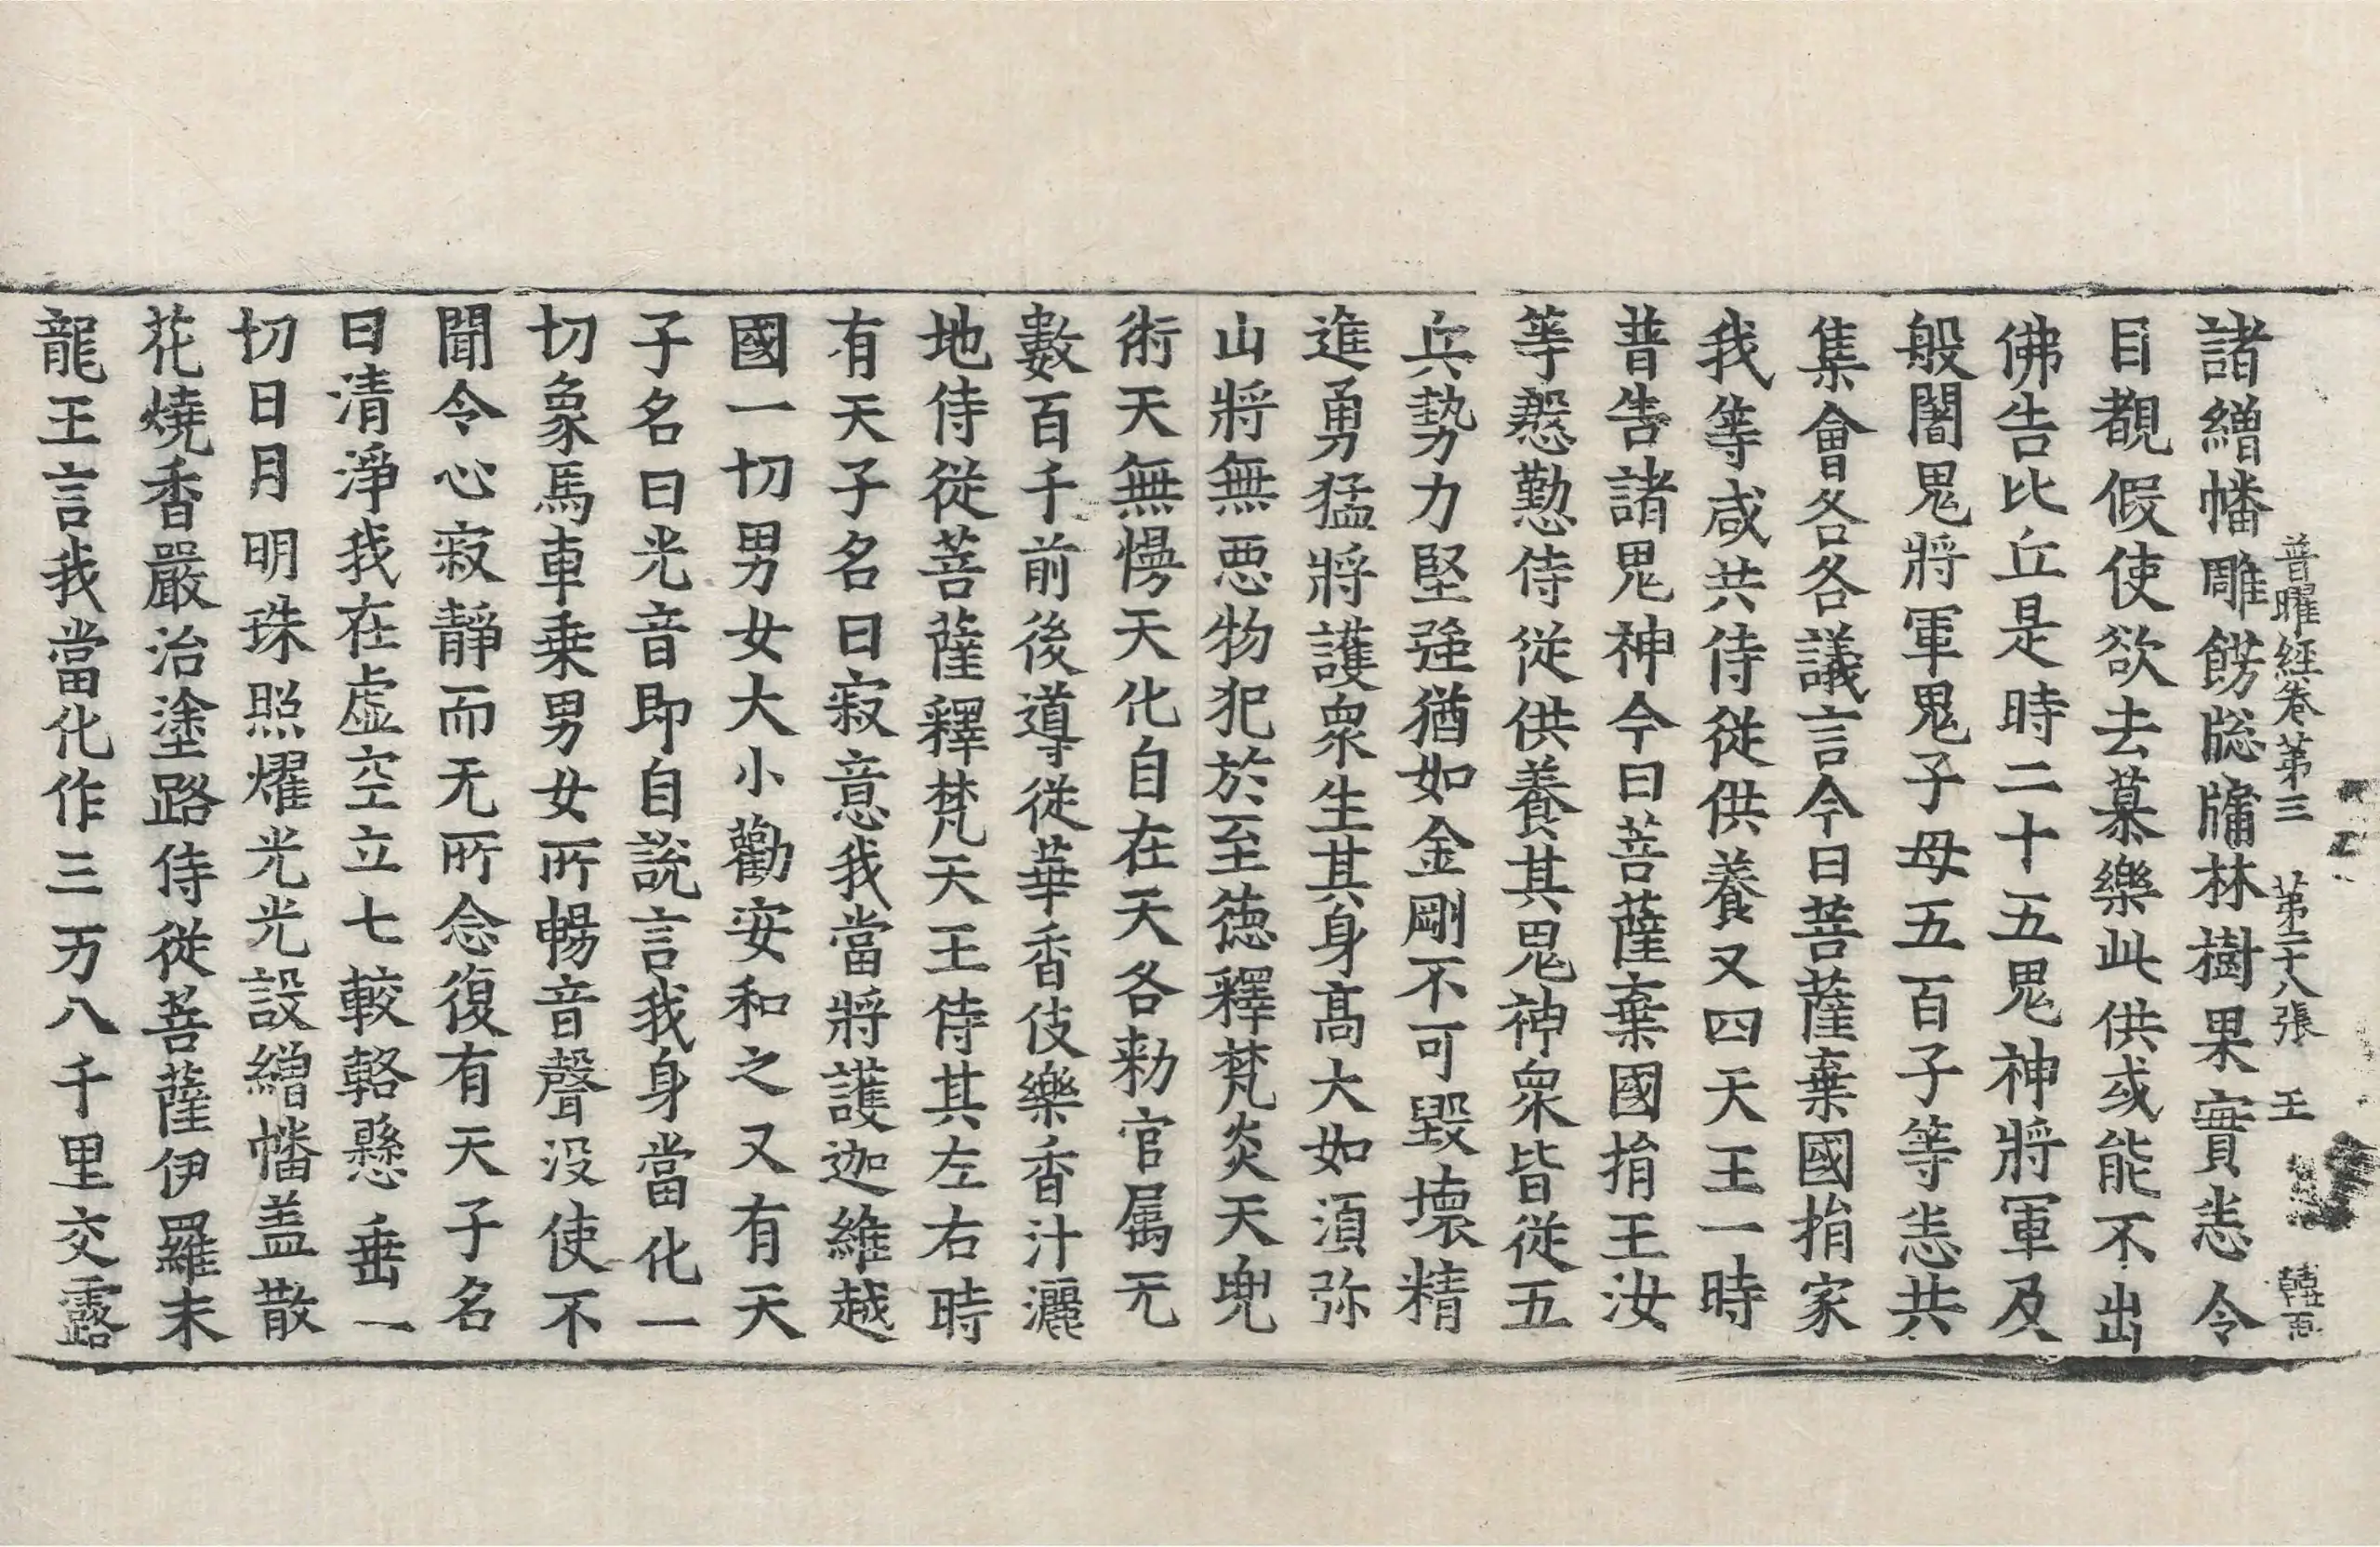 普曜経卷第三 第二十八張 王
諸繒幡雕餝䆫牗林樹果實恚令
目覩假使欲去慕樂此供或能不出
佛告比丘是時二十五鬼神將軍及
般闍鬼將軍鬼子母五百子等恚共
集會各各議言今日菩薩棄國捐家
我等咸共侍從供養又四天王一時
普告諸鬼神今日菩薩棄國捐王汝
等慇懃侍從供養其鬼神衆皆從五
兵勢力堅強猶如金剛不可毀壞精
進勇猛將護衆生其身髙大如湏弥
山將無悪物犯於至徳釋梵炎天兜
術天無憍天化自在天各勑官属无
數百千前後導從華香伎樂香汁灑
地侍從菩薩釋梵天王侍其左右時
有天子名曰寂意我當將護迦維越
國一切男女大小勸安和之又有天
子名曰光音即自說言我身當化一
切象馬車乗男女所暢音聲没使不
聞令心寂靜而无所念復有天子名
曰清淨我在虚空立七較輅懸垂一
切日月明珠照燿光光設繒幡盖散
花燒香嚴治塗路侍從菩薩伊羅末
龍王言我當化作三万八千里交露